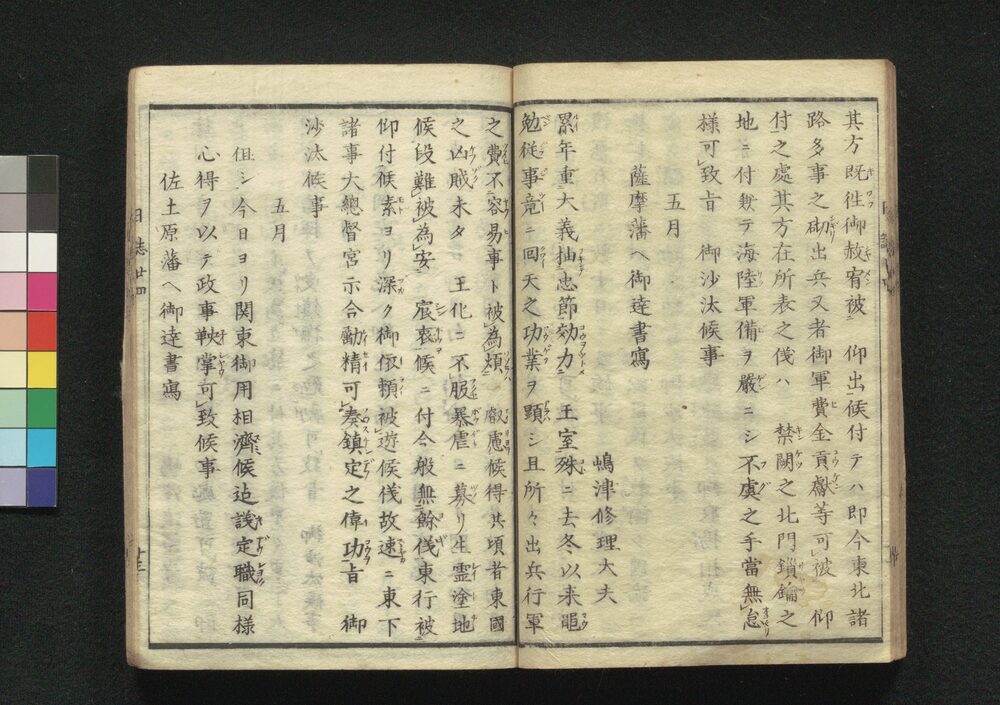 其方既往御赦宥被 仰出候付テハ即今東北諸
路多事之砌出兵又者御軍費金貢獻等可被 仰
付之處其方在所表之儀ハ 禁闕之北門鎖鑰之
地ニ付兼テ海陸軍備ヲ嚴ニシ不虞之手當無怠
樣可致旨 御沙汰候事
五月
薩摩藩ヘ御達書寫
嶋津修理大夫
累年重大義抽忠節効力 王室殊ニ去冬以来黽
勉從事竟ニ回天之功業ヲ顕シ且所々出兵行軍
之費不容易事ト被為煩 叡慮候得共頃者東國
之凶賊未タ 王化ニ不服暴虐ニ募リ生靈塗地
候段難被為安 宸衷候ニ付今般無餘儀東行被
仰付候素ヨリ深ク御依頼被遊候儀故速ニ東下
諸事大總督宮示合勵精可奏鎮定之偉功旨 御
沙汰候事
五月
但シ今日ヨリ関東御用相濟候迠議定職同様
心得ヲ以テ政事鞅掌可致候事
佐土原藩ヘ御達書寫
日誌廿四